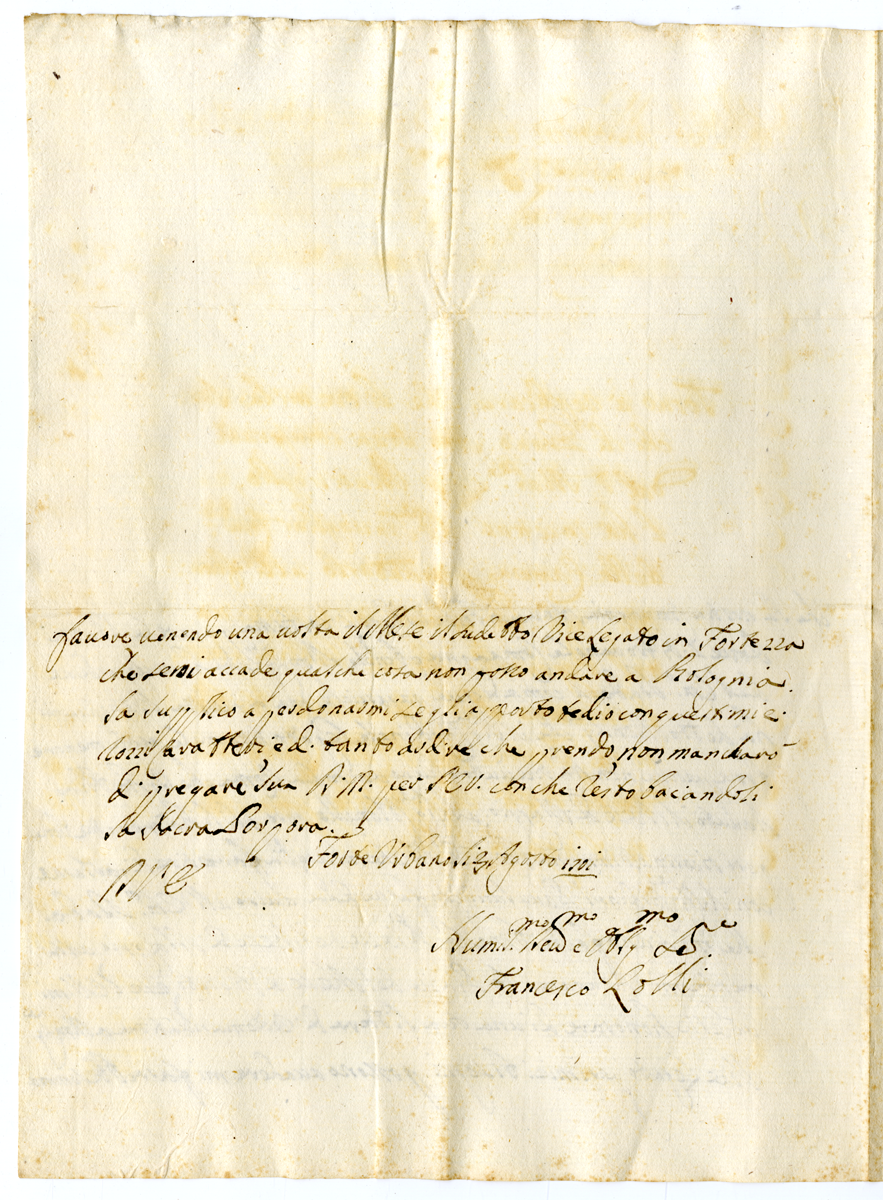 favore venendo una volta il Mese il sudetto Vice Legato in Fortezza
che semi accade qualche cosa non posso andare a Bolognia.
la supplico a perdonarmi se gli apporto tedio con questi miei
rozzi caratteri e di tanto ardire che prendo, non mancharò
di pregare sua D. M. per V. E. con che resto baciandoli
la Sacra Porpora.
Forte Urbano li Agosto 1701
Humil.mo Dev.mo e Obblig.mo Se.re
Francesco Lolli